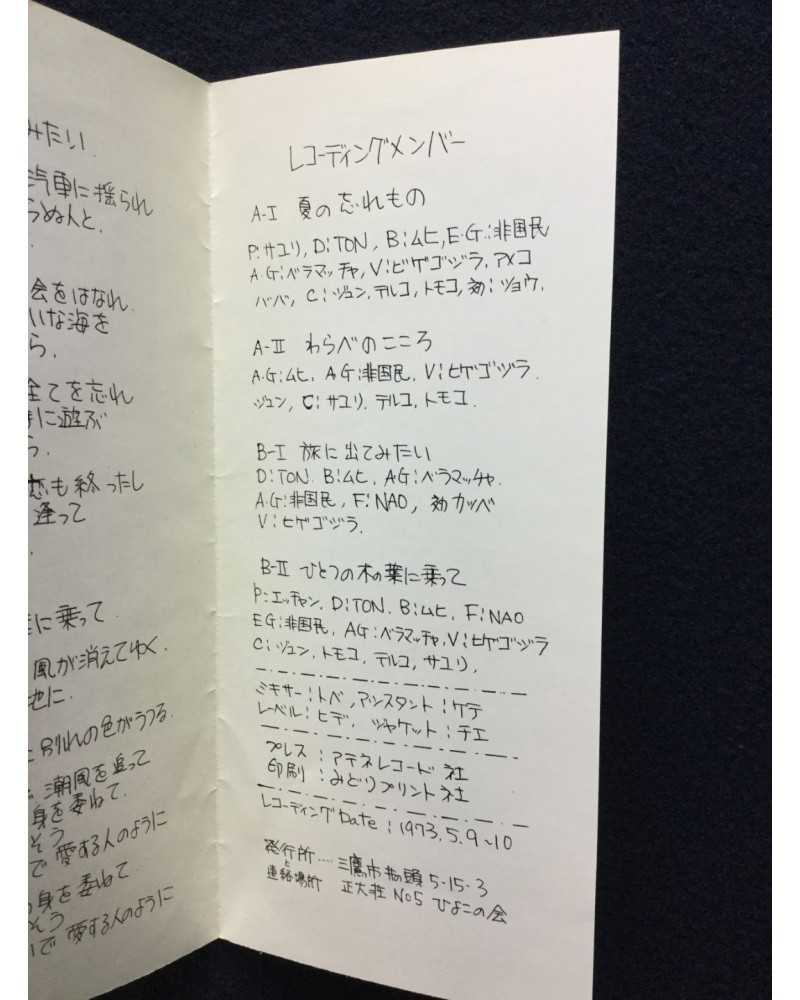 みたい
汽車に揺られ
らぬ人と.
会をはなれ.
いな海を
ら.
全てを忘れ
に遊ぶ
う.
恋も終ったし
逢って
に乗って
風が消えてゆく.
地に.
別れの色がうつる.
潮風を追って
身を委ねて.
そう
で愛する人のように
身を委ねて
そう
いで愛する人のように
レコーディングメンバー
A-I 夏の忘れもの
P:サユリ, D:TON, B:ムヒ, E・G.:非国民
A.G:ベラマッチャ, V:ヒゲゴジラ, アメコ
ババ, C:ジュン, テルコ, トモコ, 効:ツョウ.
A-II わらべのこころ
A.G:ムヒ, A G:非国民, V:ヒゲゴジラ.
ジュン, C:サユリ, テルコ, トモコ.
B-I 旅に出てみたい
D:TON. B:ムヒ, AG:ベラマッチャ.
A.G:非国民, F:NAO, 効カッペ
V:ヒゲゴジラ.
B-II ひとつの木の葉に乗って
P:エッチャン, D:TON. B:ムヒ, F:NAO
EG:非国民, AG:ベラマッチャ, V:ヒゲゴジラ
C:ジュン, トモコ, テルコ, サユリ.
ミキサー:トベ, アシスタント:ケテ
レーベル:ヒデ, ジャケット:チエ
プレス:アテネレコード社
印刷:みどりプリント社
レコーディングDate:1973.5.9~10
発行所‥‥三鷹市井の頭5-15-3
と
連絡場所 正大荘 No5 ひよこの会